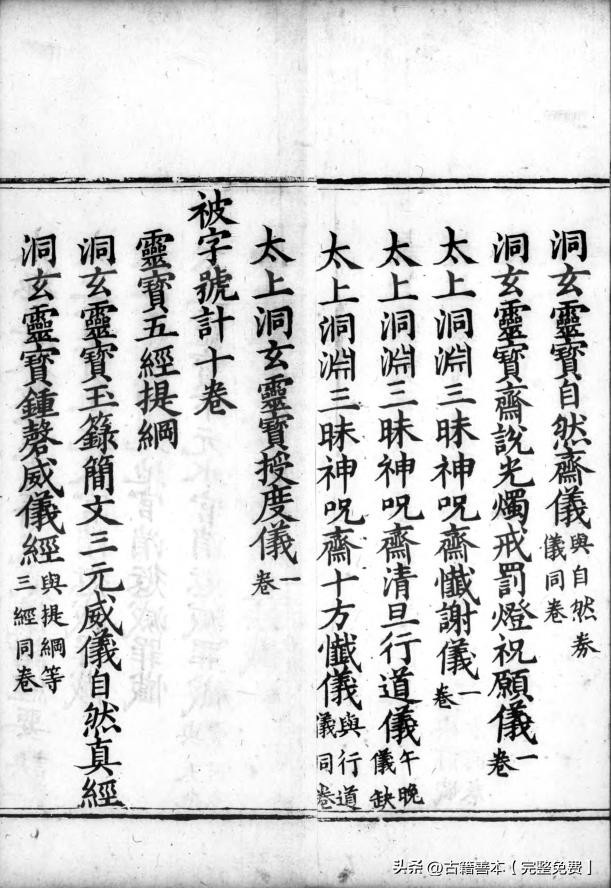 洞玄靈寶自然齋儀與自然券儀同卷
洞玄靈寶齋說光燭戒罰燈祝願儀一卷
太上洞淵三昧神呪齋懺謝儀一卷
太上洞淵三昧神呪齋清旦行道儀午晚儀缺
太上洞淵三昧神呪齋十方懺儀與行道儀同卷
太上洞玄靈寶授度儀一卷
被字號計十卷
靈寶五經提綱
洞玄靈寶玉籙簡文三元威儀自然真經
洞玄靈寶鍾磬威儀經與提綱等三經同卷
头条 @古籍善本【完整免费】